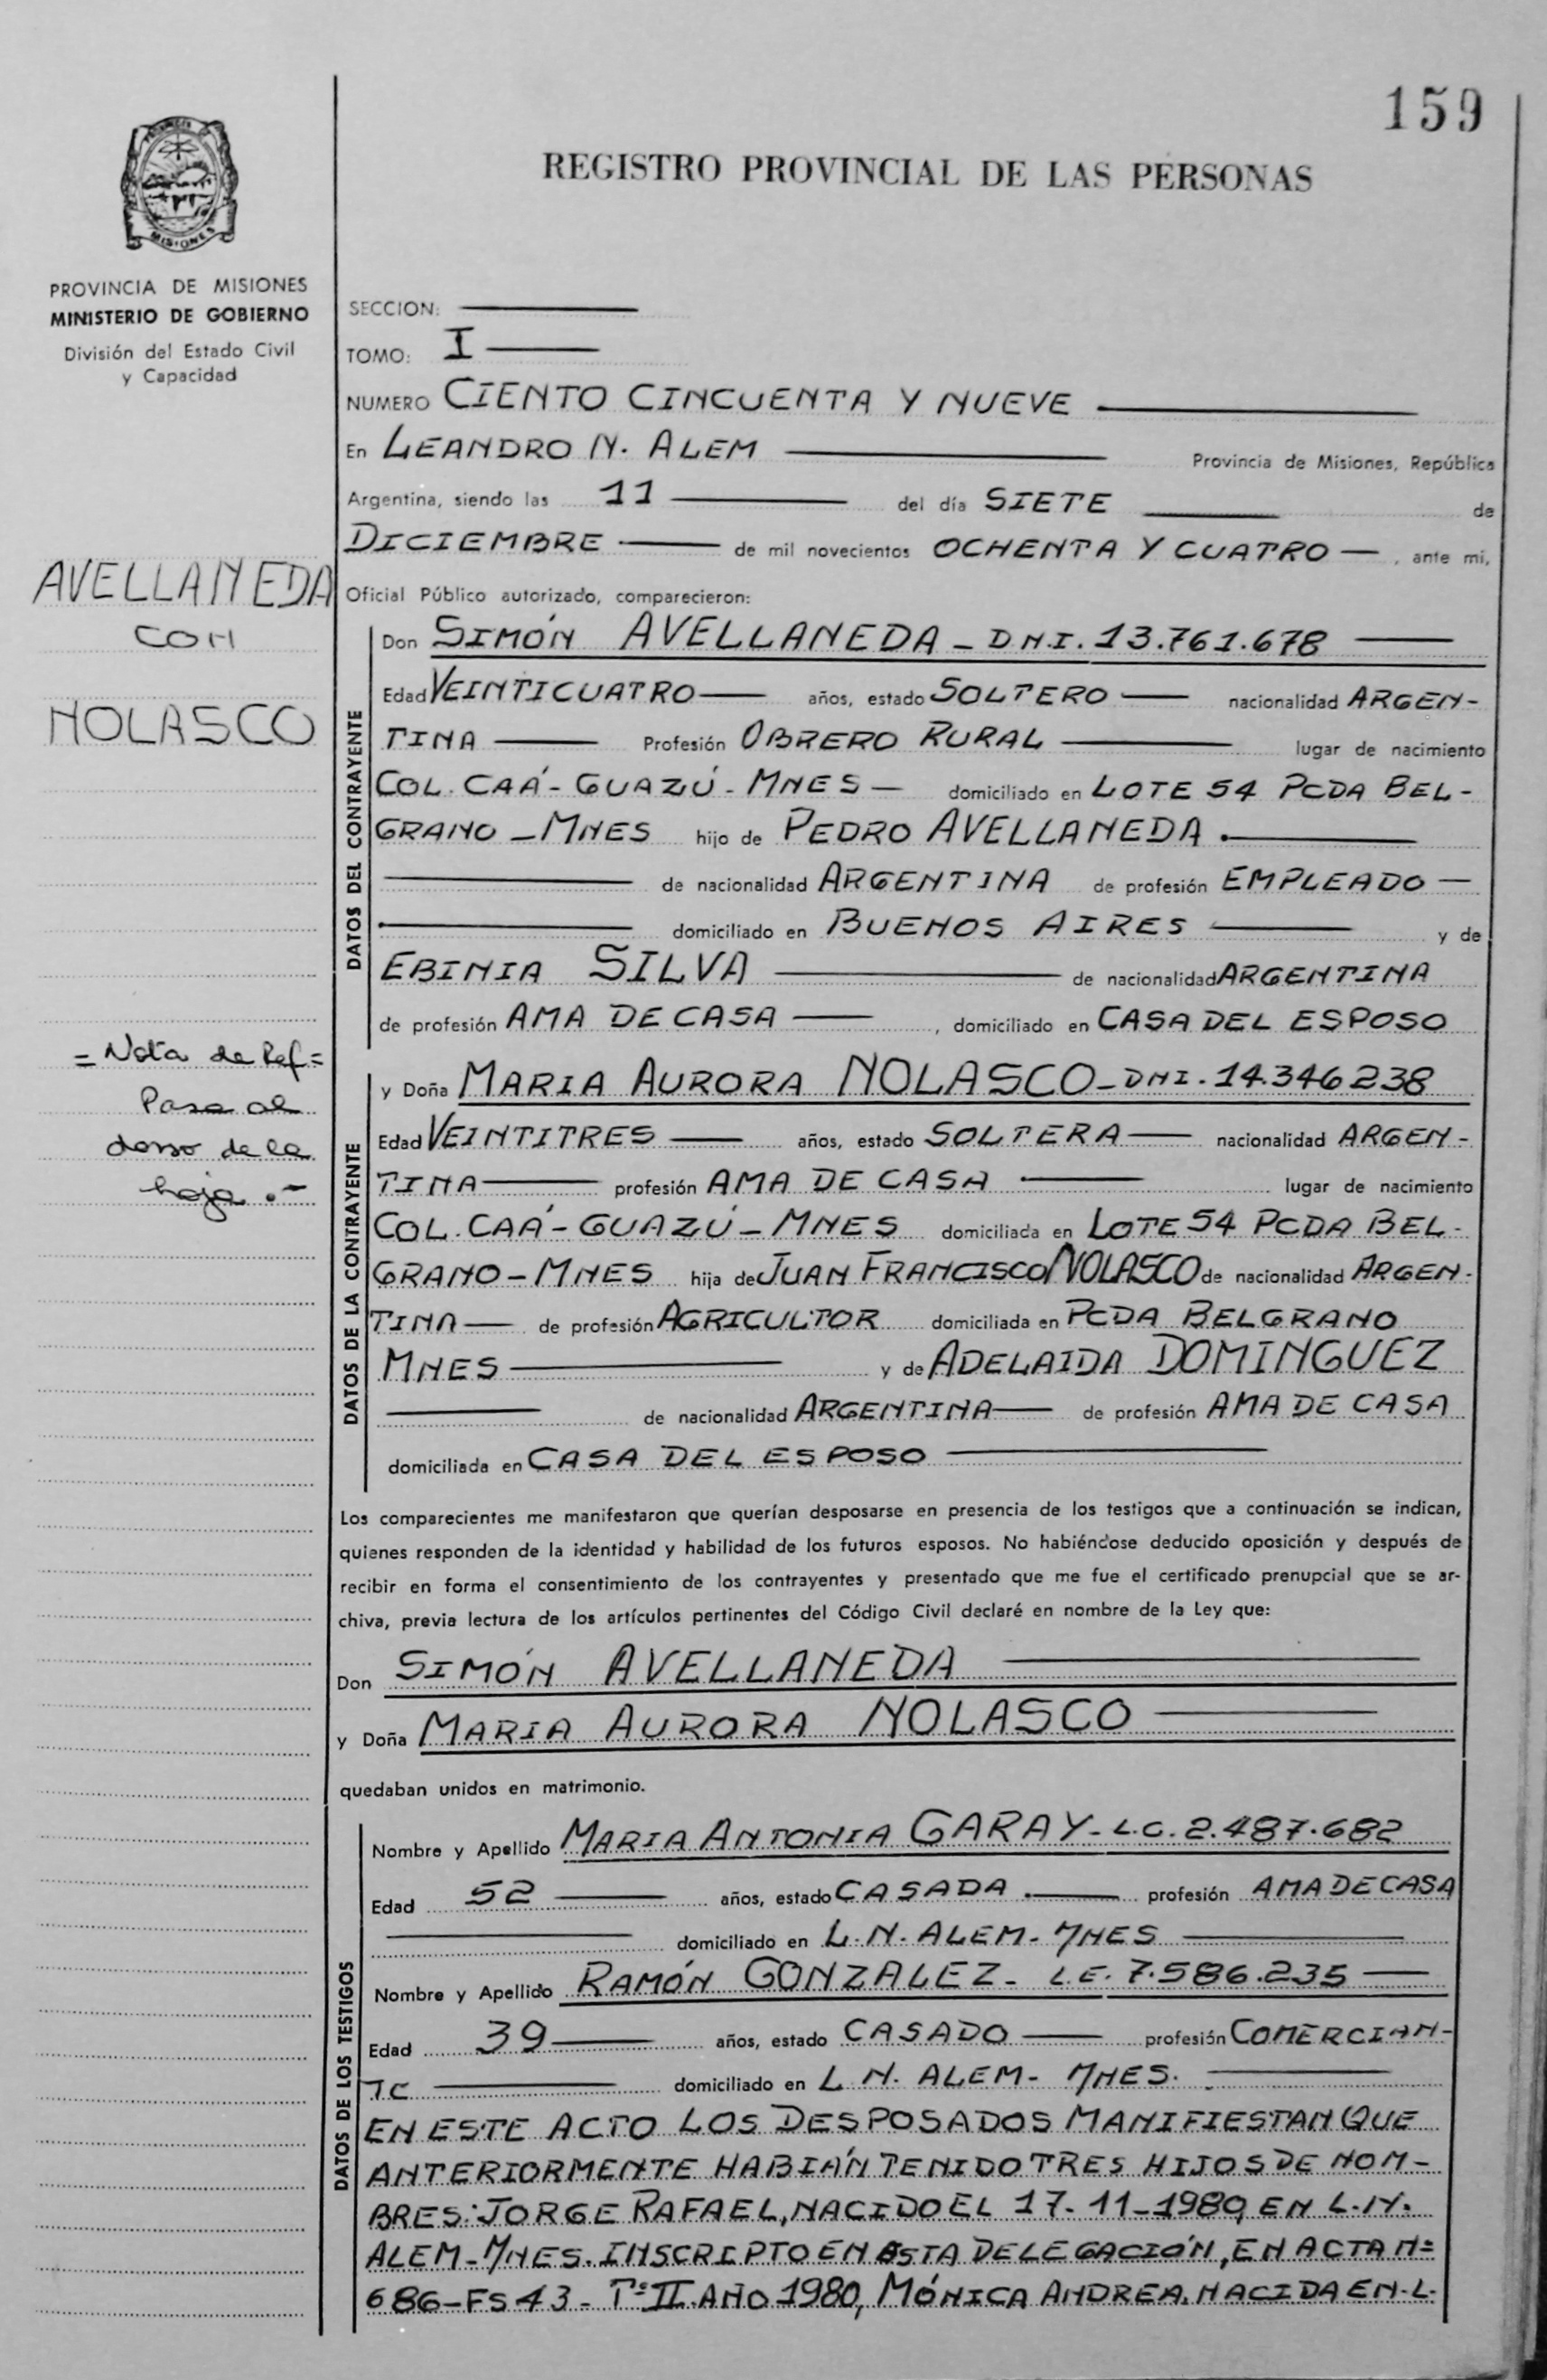 159
REGISTRO PROVINCIAL DE LAS PERSONAS
MISIONES
PROVINCIA DE MISIONES
MINISTERIO DE GOBIERNO
División del Estado Civil
y Capacidad
AVELLANEDA
CON
NOLASCO
= Nota de Ref =
Pasa al
dorso de la
hoja .-
SECCION:
TOMO: I
NUMERO CIENTO CINCUENTA Y NUEVE
En LEANDRO N. ALEM Provincia de Misiones, República
Argentina, siendo las 11 del día SIETE de
DICIEMBRE de mil novecientos OCHENTA Y CUATRO — , ante mi,
Oficial Público autorizado, comparecieron:
DATOS DEL CONTRAYENTE
Don SIMÓN AVELLANEDA - DNI. 13.761.678
Edad VEINTICUATRO años, estado SOLTERO nacionalidad ARGEN-
TINA Profesión OBRERO RURAL lugar de nacimiento
COL. CAÁ-GUAZÚ - MNES — domiciliado en LOTE 54 PCDA BEL-
GRANO - MNES hijo de PEDRO AVELLANEDA .
de nacionalidad ARGENTINA de profesión EMPLEADO —
domiciliado en BUENOS AIRES y de
EBINIA SILVA de nacionalidad ARGENTINA
de profesión AMA DE CASA , domiciliado en CASA DEL ESPOSO
DATOS DE LA CONTRAYENTE
y Doña MARIA AURORA NOLASCO - DNI. 14.346238
Edad VEINTITRES años, estado SOLTERA nacionalidad ARGEN-
TINA profesión AMA DE CASA lugar de nacimiento
COL. CAÁ-GUAZÚ - MNES domiciliada en LOTE 54 PCDA BEL-
GRANO - MNES hija de JUAN FRANCISCO NOLASCO de nacionalidad ARGEN-
TINA de profesión AGRICULTOR domiciliada en PCDA BELGRANO
MNES y de ADELAIDA DOMINGUEZ
de nacionalidad ARGENTINA de profesión AMA DE CASA
domiciliada en CASA DEL ESPOSO
Los comparecientes me manifestaron que querían desposarse en presencia de los testigos que a continuación se indican,
quienes responden de la identidad y habilidad de los futuros esposos. No habiéndose deducido oposición y después de
recibir en forma el consentimiento de los contrayentes y presentado que me fue el certificado prenupcial que se ar-
chiva, previa lectura de los artículos pertinentes del Código Civil declaré en nombre de la Ley que:
Don SIMÓN AVELLANEDA
y Doña MARIA AURORA NOLASCO
quedaban unidos en matrimonio.
DATOS DE LOS TESTIGOS
Nombre y Apellido MARIA ANTONIA GARAY - L.C. 2.487.682
Edad 52 años, estado CASADA . profesión AMA DE CASA
domiciliado en L.N. ALEM - MNES
Nombre y Apellido RAMÓN GONZALEZ - L.E. 7.586.235
Edad 39 años, estado CASADO profesión COMERCIAN-
TE domiciliado en L N. ALEM - MNES.
EN ESTE ACTO LOS DESPOSADOS MANIFIESTAN QUE
ANTERIORMENTE HABIÁN TENIDO TRES HIJOS DE NOM-
BRES: JORGE RAFAEL, NACIDO EL 17-11-1980, EN L.N.
ALEM - MNES. INSCRIPTO EN ESTA DELEGACIÓN, EN ACTA Nº
686 - FS 43 - Tº II AÑO 1980, MÓNICA ANDREA, NACIDA EN L.